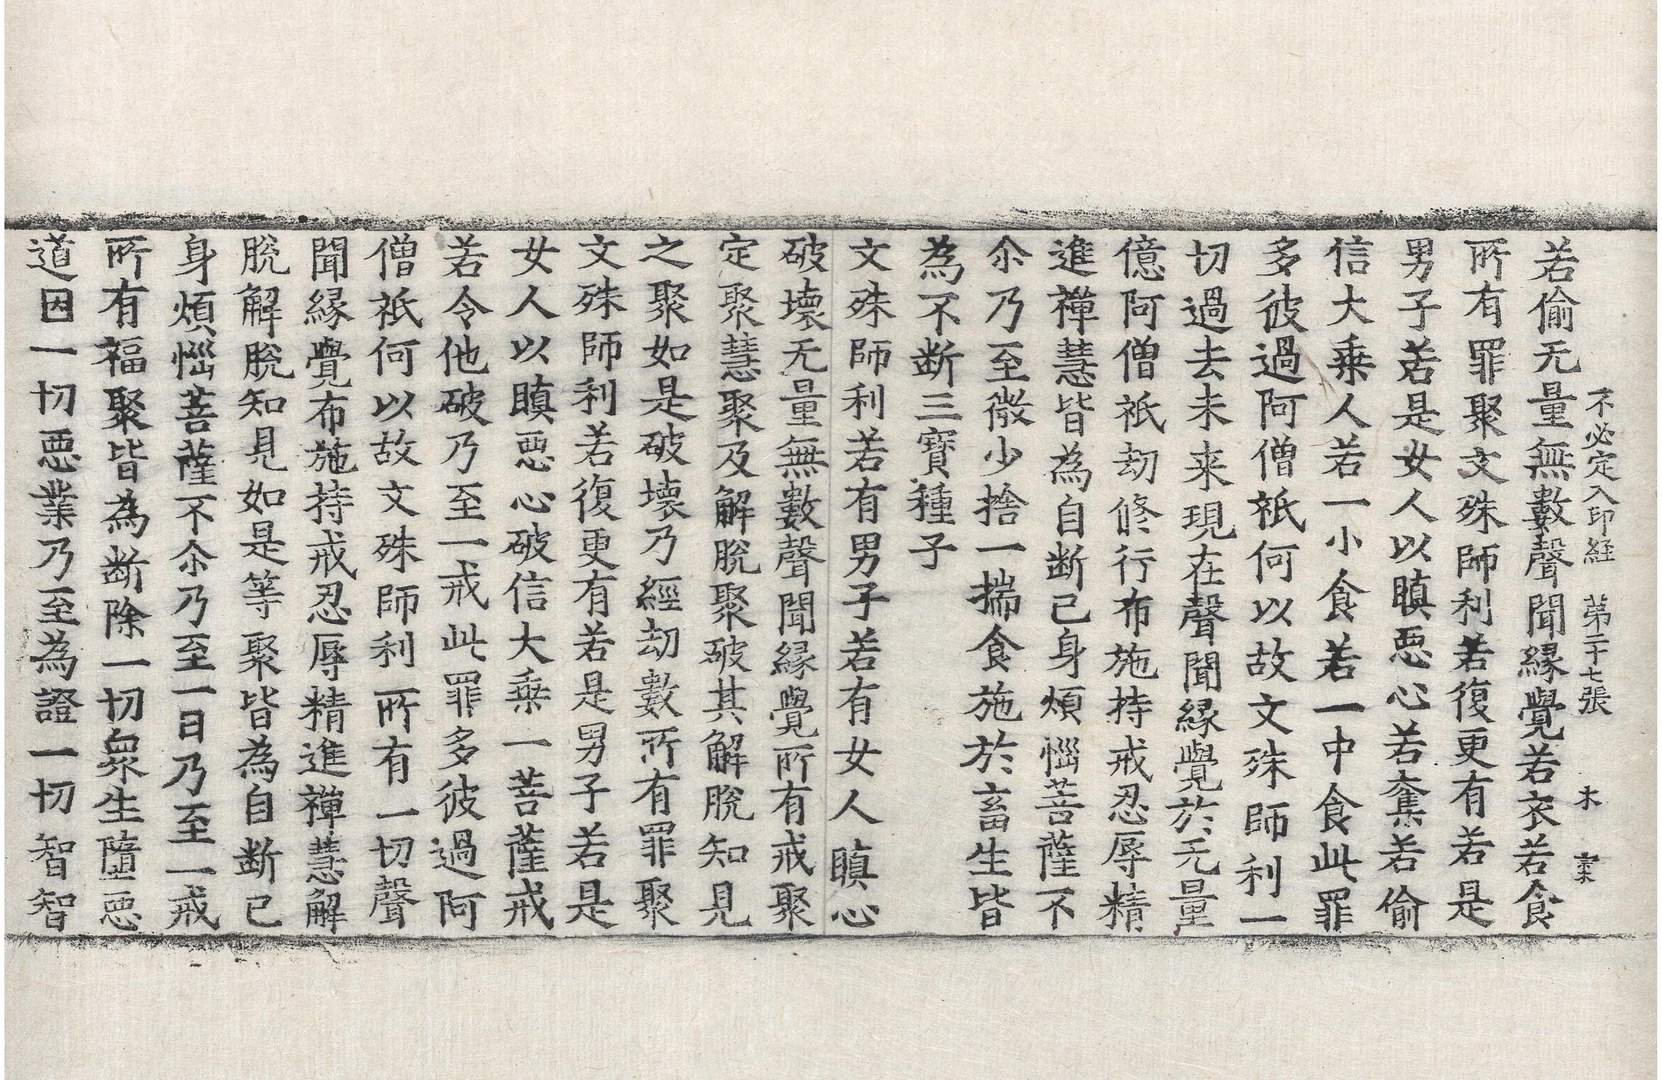 不必定入印経 第二十七張 木 宲
若偷无量無數聲聞緣覺若衣若食
所有罪聚文殊師利若復更有若是
男子若是女人以瞋惡心若奪若偷
信大乗人若一小食若一中食此罪
多彼過阿僧祇何以故文殊師利一
切過去未来現在聲聞緣覺於无量
億阿僧祇劫修行布施持戒忍辱精
進禪慧皆為自断已身煩惱菩薩不
尒乃至微少捨一揣食施於畜生皆
為不断三寶種子
文殊師利若有男子若有女人瞋心
破壊无量無數聲聞緣覺所有戒聚
定聚慧聚及解脫聚破其解脫知見
之聚如是破壊乃經劫數所有罪聚
文殊師利若復更有若是男子若是
女人以瞋惡心破信大乗一菩薩戒
若令他破乃至一戒此罪多彼過阿
僧祇何以故文殊師利所有一切聲
聞緣覺布施持戒忍辱精進禪慧解
脫解脫知見如是等聚皆為自断已
身煩惱菩薩不尒乃至一日乃至一戒
所有福聚皆為断除一切衆生墮惡
道因一切惡業乃至為證一切智智